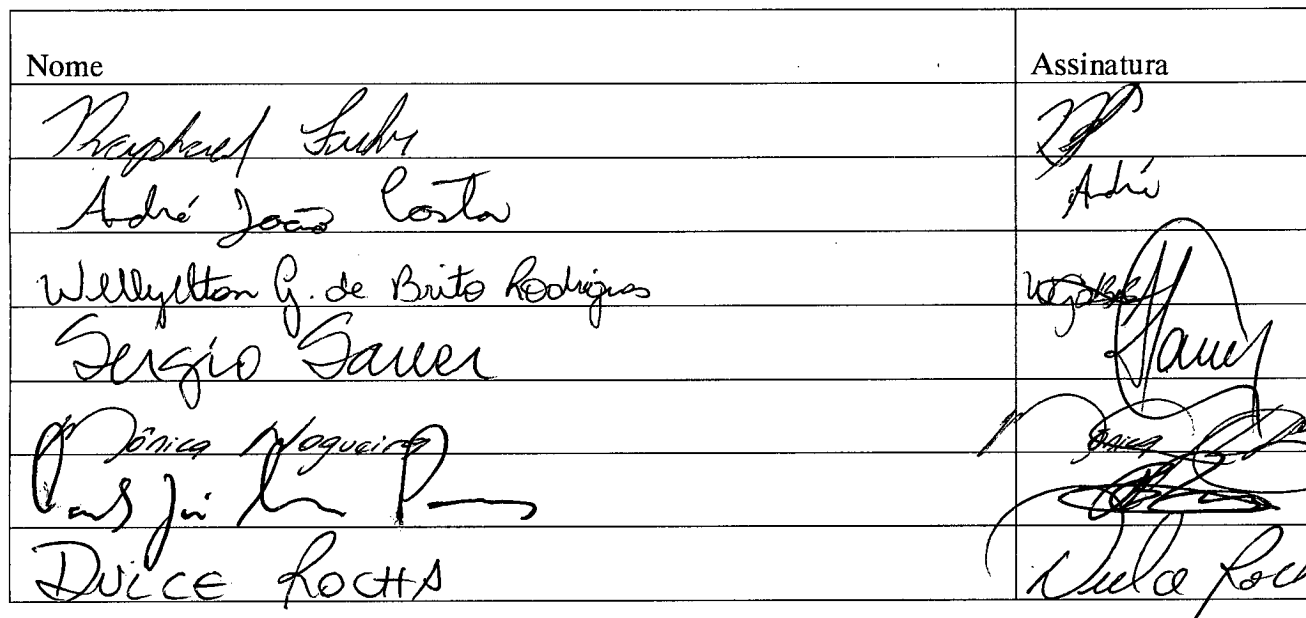 Nome Assinatura
Raphael
André João Costa André
Wellyelton G. de Brito Rodrigues
Sergio Sauer Sauer
Mônica Nogueira Mônica
DULCE ROCHA Dulce Roch